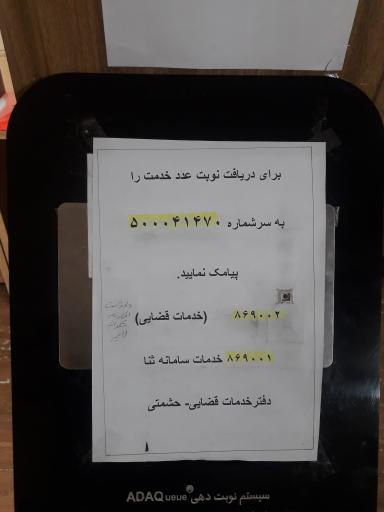 برای دریافت نوبت عدد خدمت را
به سرشماره ۵۰۰۰۴۱۴۷۰
پیامک نمایید.
۸۶۹۰۰۲ (خدمات قضایی)
۸۶۹۰۰۱ خدمات سامانه ثنا
دفترخدمات قضایی- حشمتی
سیستم نوبت دهی ADAQueue